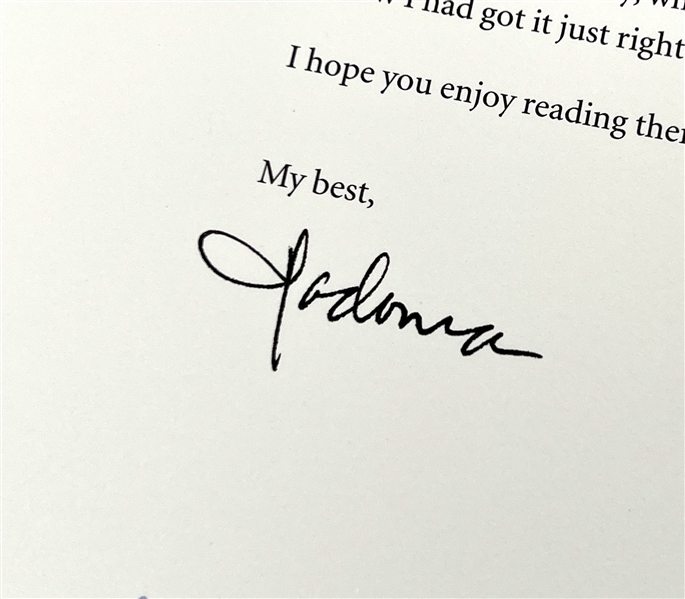 I had got it just right
I hope you enjoy reading
My best,